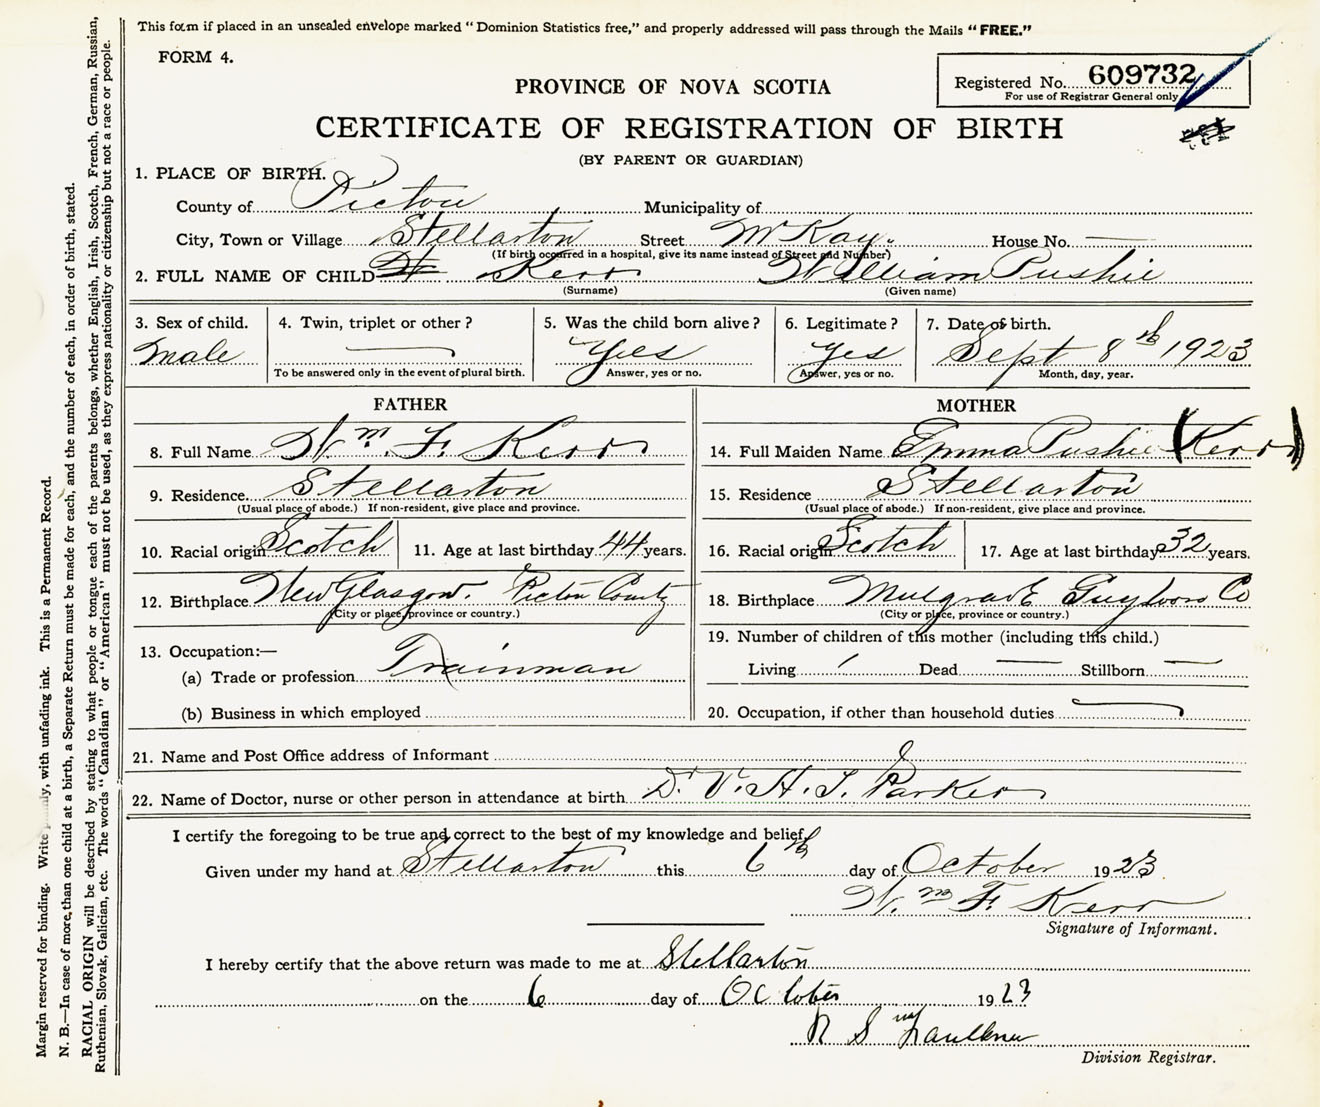 This form if placed in an unsealed envelope marked "Dominion Statistics free," and properly addressed will pass through the Mails "FREE."
FORM 4.
Registered No. 609732
For use of Registrar General only
PROVINCE OF NOVA SCOTIA
CERTIFICATE OF REGISTRATION OF BIRTH
(BY PARENT OR GUARDIAN)
1. PLACE OF BIRTH.
County of Pictou Municipality of
City, Town or Village Stellarton Street McKay. House No. —
(If birth occurred in a hospital, give its name instead of Street and Number)
2. FULL NAME OF CHILD Kerr William Pushie
(Surname) (Given name)
3. Sex of child. 4. Twin, triplet or other? 5. Was the child born alive? 6. Legitimate? 7. Date of birth.
Male — Yes Yes Sept 8th 1923
To be answered only in the event of plural birth. Answer, yes or no. Answer, yes or no. Month, day, year.
FATHER
8. Full Name Wm. F. Kerr
9. Residence Stellarton
(Usual place of abode.) If non-resident, give place and province.
10. Racial origin Scotch 11. Age at last birthday 44 years.
12. Birthplace New Glasgow. Pictou County
(City or place, province or country.)
13. Occupation:—
(a) Trade or profession Trainman
(b) Business in which employed
MOTHER
14. Full Maiden Name Emma Pushie (Kerr)
15. Residence Stellarton
(Usual place of abode.) If non-resident, give place and province.
16. Racial origin Scotch 17. Age at last birthday 32 years.
18. Birthplace Mulgrave Guysboro Co
(City or place, province or country.)
19. Number of children of this mother (including this child.)
Living 1 Dead — Stillborn —
20. Occupation, if other than household duties —
21. Name and Post Office address of Informant
22. Name of Doctor, nurse or other person in attendance at birth Dr. V. H. T. Parker
I certify the foregoing to be true and correct to the best of my knowledge and belief
Given under my hand at Stellarton this 6th day of October 1923
Wm F. Kerr
Signature of Informant.
I hereby certify that the above return was made to me at Stellarton
on the 6 day of October 1923
Faulkner
Division Registrar.
Margin reserved for binding. Write with unfading ink. This is a Permanent Record.
N. B.—In case of more than one child at a birth, a Separate Return must be made for each, and the number of each, in order of birth, stated.
RACIAL ORIGIN will be described by stating to what people or tongue each of the parents belongs, whether English, Irish, Scotch, French, German, Russian,
Ruthenian, Slovak, Galician, etc. The words "Canadian" or "American" must not be used, as they express nationality or citizenship but not a race or people.